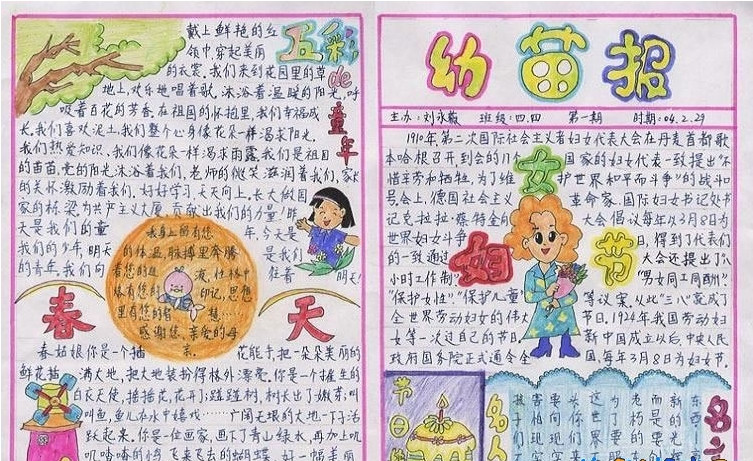 五彩de童年
戴上鲜艳的红
领巾穿起美丽
的衣裳。我们来到花园里的草
地上,欢乐地唱着歌,沐浴着温暖的阳光,呼
吸着百花的芳香。在祖国的怀抱里,我们幸福成
长,我们喜欢泥土,我们整个心身像花朵一样渴求阳光,
我们热爱知识,我们像花朵一样渴求雨露,我们是祖国
的苗苗,党的阳光沐浴着我们,老师的微笑滋润着我们,家长
的关怀激励着我们,好好学习,天天向上。长大做国
家的栋梁,为共产主义大厦贡献出我们的力量!昨
天是我们的童年,今天是
我们的少年,明天
的青年,我们向往着明天!
我身上留有您
的体温,脉搏里奔腾
着您的血液,性格中
烙有您的印记,思想
里有您的智慧……
感谢您,亲爱的母亲。
春天
春姑娘你是个插花能手,把一朵朵美丽的
鲜花插满大地,把大地装扮得格外漂亮。你是个催生的
白衣天使,摇摇花,花开了;蹬蹬树,树长出了嫩芽;叫
叫鱼,鱼儿在水中嬉戏……广阔无垠的大地一下子活
跃起来。你是一位画家,画下了青山绿水,再加上叽
叽喳喳的小鸟,飞来飞去的蝴蝶,好一幅美丽
幼苗报
主办:刘永薇 班级:四.四 第一期 时期:04.2.29
妇女节
1910年,第二次国际社会主义者妇女代表大会在丹麦首都歌
本哈根召开,到会的17个国家的妇女代表一致提出"不
惜辛劳和牺牲,为了维护世界和平而斗争"的战斗口
号会上,德国社会主义革命家、国际妇女书记处书
记克拉拉·蔡特金的大会倡议每年以3月8日为
世界妇女斗争日,得到了代表们
的一致通过大会还提出了"八
小时工作制""男女同工同酬"、
"保护女性""保护儿童"等议案,从此"三八"就成了
全世界劳动妇女的伟大节日。1924年我国劳动妇
女第一次过自己的节日,新中国成立以后,中央人民
政府国务院正式通令全国,每年3月8日为妇女节。
节日
名人名言